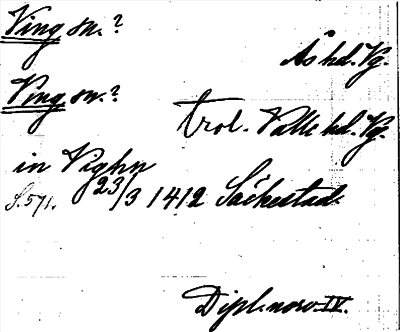 Ving sn.?
Ås hd. Vg.
Ving sn.?
trol. Valle hd. Vg.
in Vighn
S. 571. 23/3 1412 Säckestad
Dipl. norv. IV.